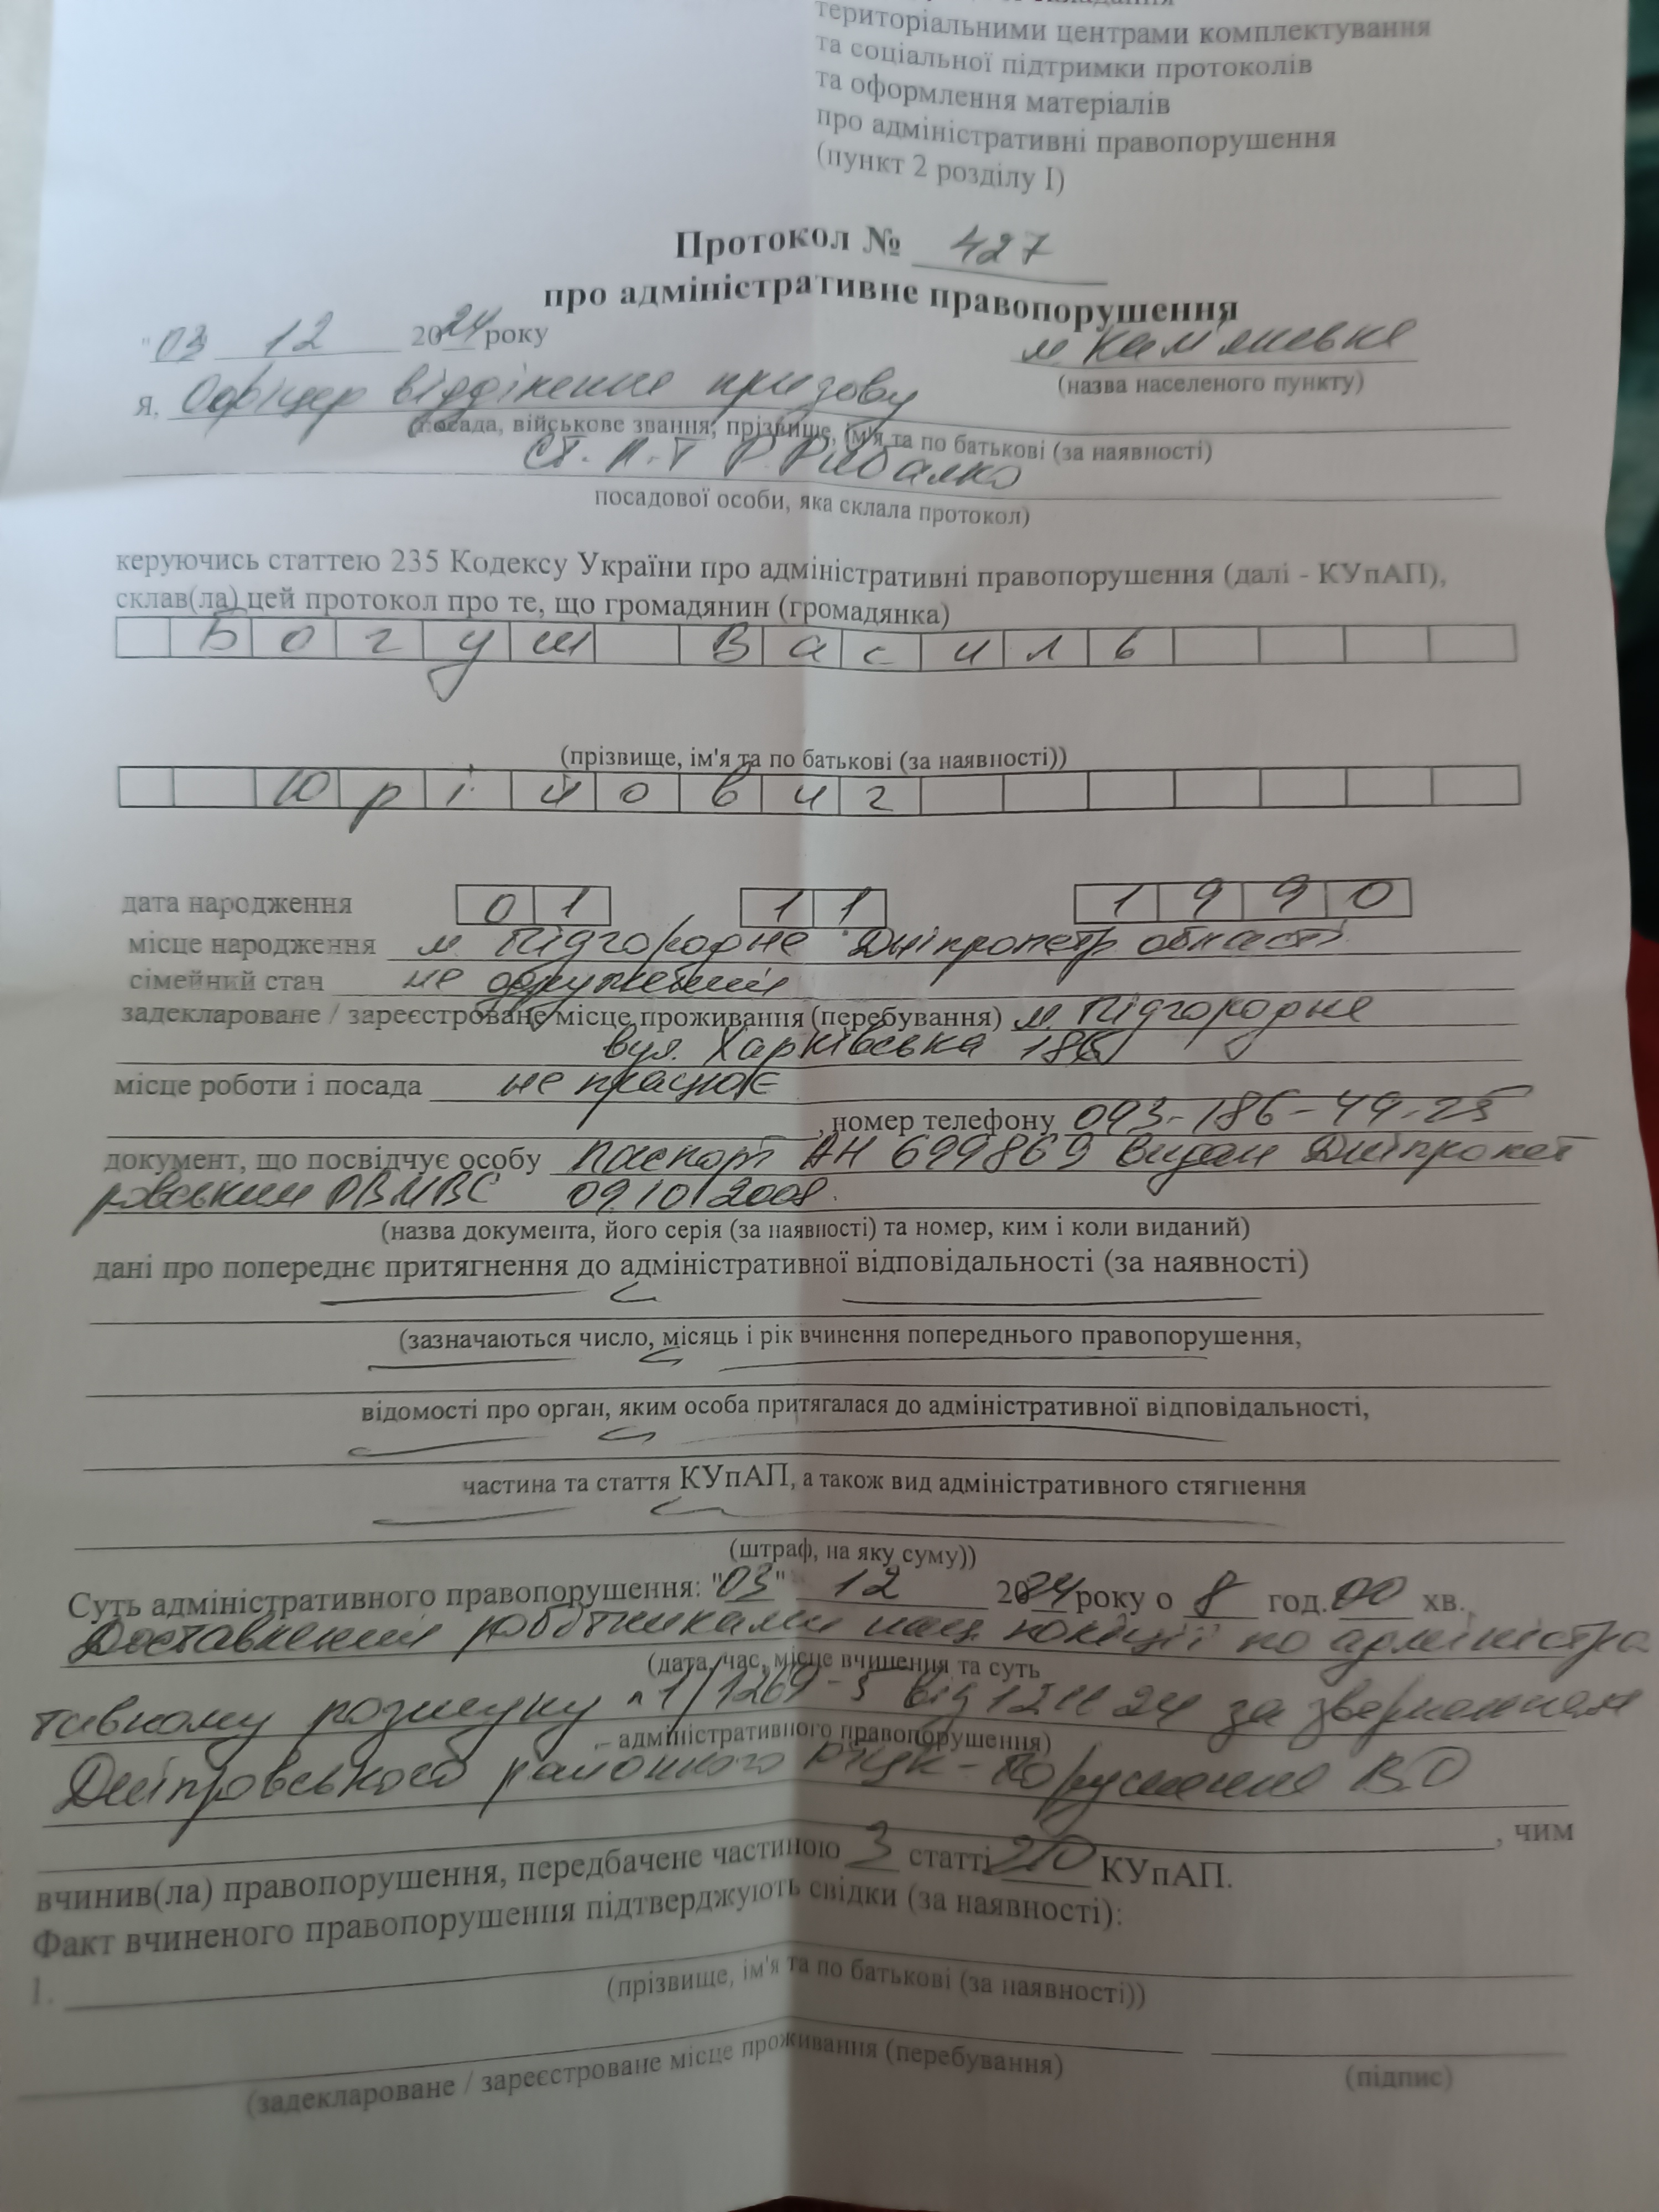 територіальними центрами комплектування
та соціальної підтримки протоколів
та оформлення матеріалів
про адміністративні правопорушення
(пункт 2 розділу І)
Протокол № 427
про адміністративне правопорушення
"03 12 2024 року м Кам'янське
(назва населеного пункту)
Я, Офіцер відділення призову
(посада, військове звання, прізвище, ім'я та по батькові (за наявності)
ст. л-т Р. Рибалко
посадової особи, яка склала протокол)
керуючись статтею 235 Кодексу України про адміністративні правопорушення (далі - КУпАП),
склав(ла) цей протокол про те, що громадянин (громадянка)
Богуш Василь
(прізвище, ім'я та по батькові (за наявності))
Юрійович
дата народження 01 11 1990
місце народження м. Підгородне Дніпропетр. області
сімейний стан не одружений
задеклароване / зареєстроване місце проживання (перебування) м. Підгородне
вул. Харківська
місце роботи і посада не працює
, номер телефону 093-186-49-25
документ, що посвідчує особу паспорт АН 699869 видан Дніпропет
ровським РВ МВС 09.10.2008.
(назва документа, його серія (за наявності) та номер, ким і коли виданий)
дані про попереднє притягнення до адміністративної відповідальності (за наявності)
(зазначаються число, місяць і рік вчинення попереднього правопорушення,
відомості про орган, яким особа притягалася до адміністративної відповідальності,
частина та стаття КУпАП, а також вид адміністративного стягнення
(штраф, на яку суму))
Суть адміністративного правопорушення: "03" 12 2024 року о 8 год. 00 хв.,
Доставлений робітниками нац поліції по адміністра
(дата, час, місце вчинення та суть
тивному розшуку 1/1269-5 від 12 11 24 за зверненням
адміністративного правопорушення)
Дніпровського районного РТЦК - Порушення В.О
, чим
вчинив(ла) правопорушення, передбачене частиною 3 статті 210 КУпАП.
Факт вчиненого правопорушення підтверджують свідки (за наявності):
1.
(прізвище, ім'я та по батькові (за наявності))
(задеклароване / зареєстроване місце проживання (перебування) (підпис)